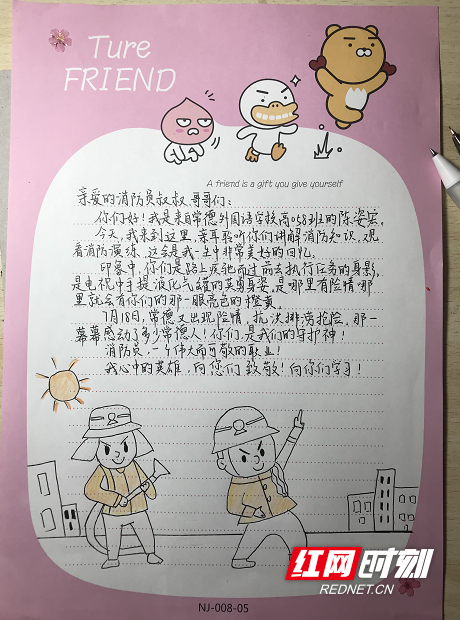 Ture
FRIEND
A friend is a gift you give yourself
亲爱的消防员叔叔、哥哥们：
你们好！我是来自常德外国语学校高058班的陈姿
今天，我来到这里，亲耳聆听你们讲解消防知识，观
看消防演练，这会是我一生中非常美好的回忆。
印象中，你们是路上疾驰而过前去执行任务的身影，
是电视中手提液化气罐的英勇身姿，是哪里有险情哪
里就会有你们的那一眼亮色的橙黄。
7月18日，常德又出现险情，抗洪排涝抢险，那一
幕幕感动了多少常德人！你们是我们的守护神！
消防员，一个伟大而可敬的职业！
我心中的英雄，向您们致敬！向你们学习！
红网时刻
REDNET.CN
NJ-008-05